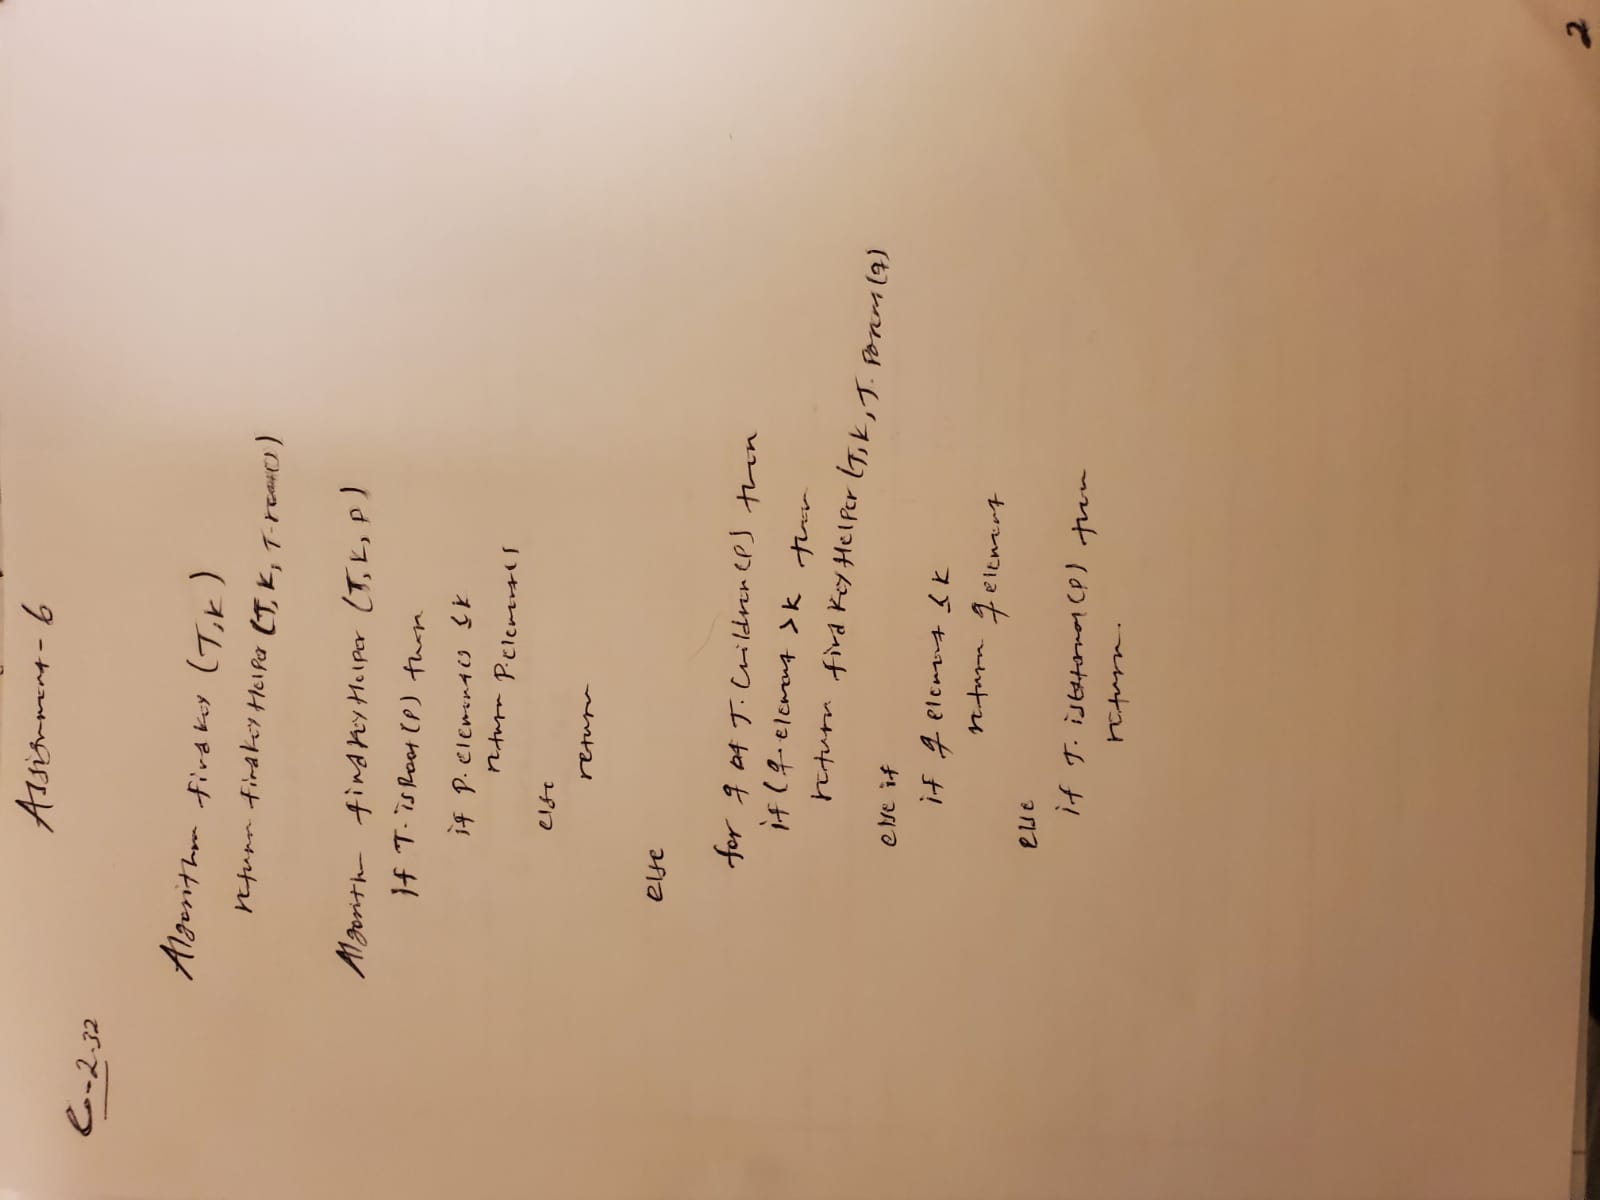 Assignment-6
C-2.32
Algorithm findkey (T,k)
return findkeyHelper (T, k, T.root())
Algorith findkeyHelper (T, k, p)
If T.isRoot(p) then
if p.element() ≤ k
return p.element
else
return
else
for q of T.children(p) then
if (q.element > k then
return findkeyHelper (T, k, T.Parent(q)
else if
if q element ≤ k
return q element
else
if T. (p) then
return.
2